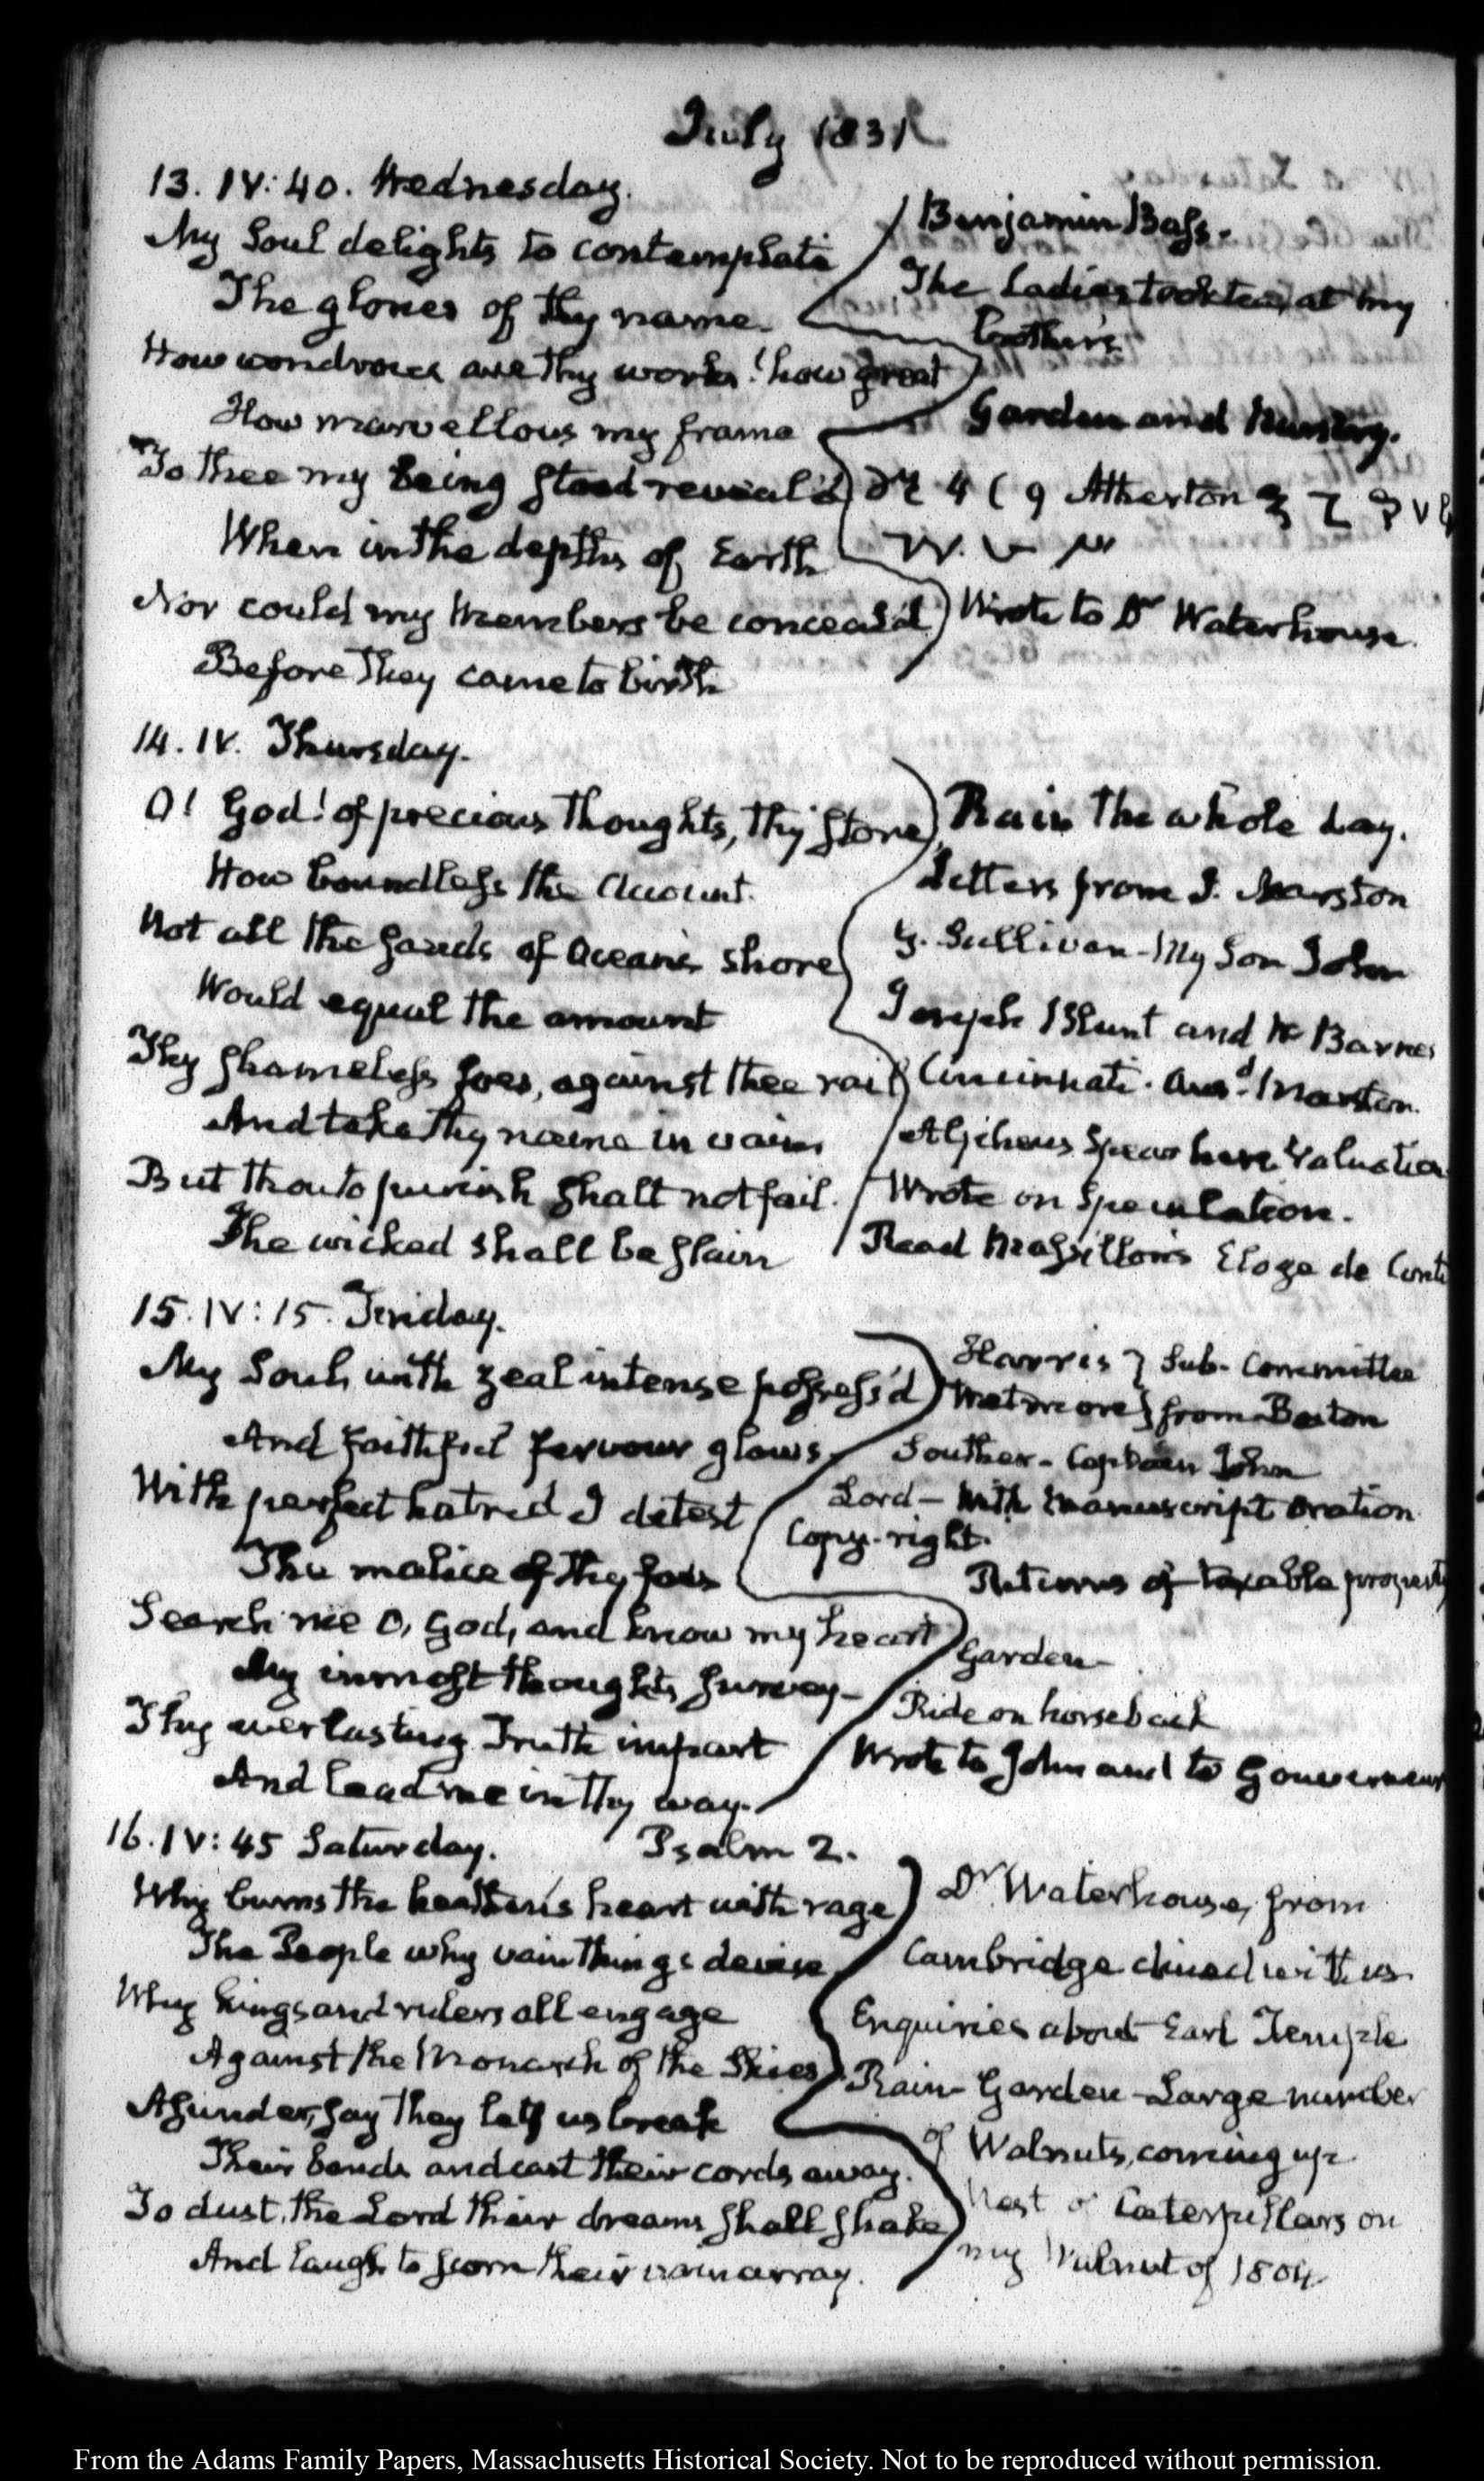 July 1831
13. IV: 40. Wednesday.
My Soul delights to contemplate
The glories of thy name.
How wondrous are thy works! how great
How marvellous my frame
To thee my being stood reveal'd
When in the depths of Earth
Nor could my members be conceal'd
Before they came to birth
Benjamin Bass.
The Ladies took tea at my
brother's
Garden and Nursery.
Atherton
Wrote to Dr Waterhouse.
14. IV. Thursday.
O! God! of precious thoughts, thy store,
How boundless the amount.
Not all the sands of Oceans shore
Would equal the amount
Thy shameless foes, against thee rail
And take thy name in vain
But thou to punish shalt not fail.
The wicked shall be slain
Rain the whole day.
Letters from J. Marston
G. Sullivan - My Son John
Joseph Blunt and Barnes
Cincinnati. Ansd. Marston.
Alpheus Spear here Valuation
Wrote on Speculation.
Read Massillon's Eloge de Conti
15. IV: 15. Friday.
My Soul, with zeal intense possess'd
And faithful fervour glows.
With perfect hatred I detest
The malice of thy foes
Search me O, God, and know my heart
My inmost thoughts survey-
Thy everlasting Truth impart
And lead me in thy way.
Harris } Sub-Committee
Wetmore } from Boston
Souther - Captain John
Lord - with manuscript Oration
Copy-right.
Returns of taxable property
Garden
Ride on horseback
Wrote to John and to Gouverneur
16. IV: 45 Saturday. Psalm 2.
Why burns the heathen's heart with rage
The People why vain things devise
Why kings and rulers all engage
Against the Monarch of the Skies
Asunder, say they let us break
Their bonds and cast their cords away.
To dust, the Lord their dreams shall shake
And laugh to scorn their vain array.
Dr Waterhouse, from
Cambridge dined with us.
Enquiries about Earl Temple
Rain - Garden - Large number
of Walnuts, coming up
Nest of Caterpillars on
my Walnut of 1804
From the Adams Family Papers, Massachusetts Historical Society. Not to be reproduced without permission.